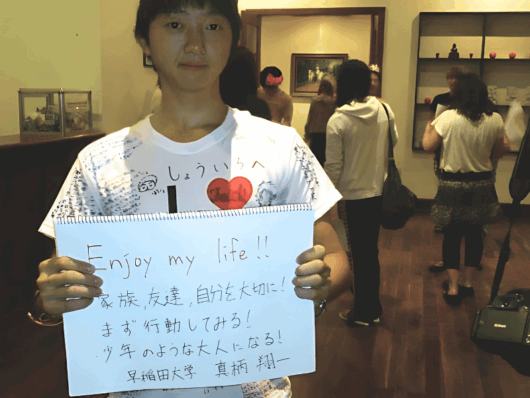 しょういちへ
Enjoy my life!!
家族、友達、自分を大切に!
まず行動してみる!
少年のような大人になる!
早稲田大学 真柄 翔一